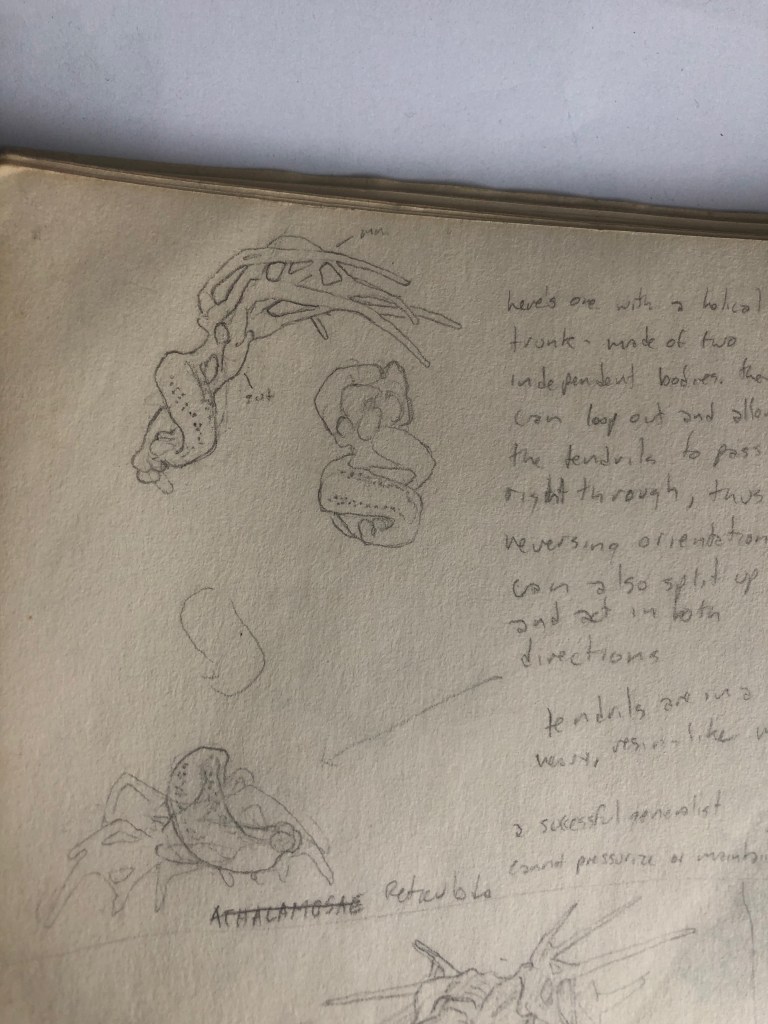 here's one with a helical
trunk - made of two
independent bodies. they
can loop out and allo
the tendrils to pass
right through, thus
reversing orientation
can also split up
and act in both
directions
tendrils are in a
waxy, resin-like
a sucessful generalist
cannot pressurize or maintai
ATHALAMOSAE Reticulate